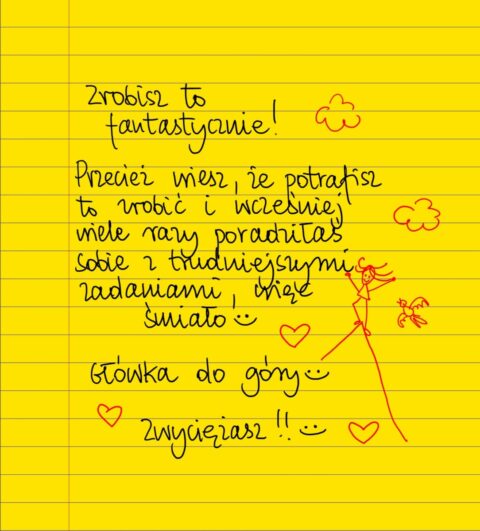 Zrobisz to
fantastycznie!
Przecież wiesz, że potrafisz
to zrobić i wcześniej
wiele razy poradziłaś
sobie z trudniejszymi
zadaniami, więc
śmiało :)
Główka do góry :)
Zwyciężasz!! :)